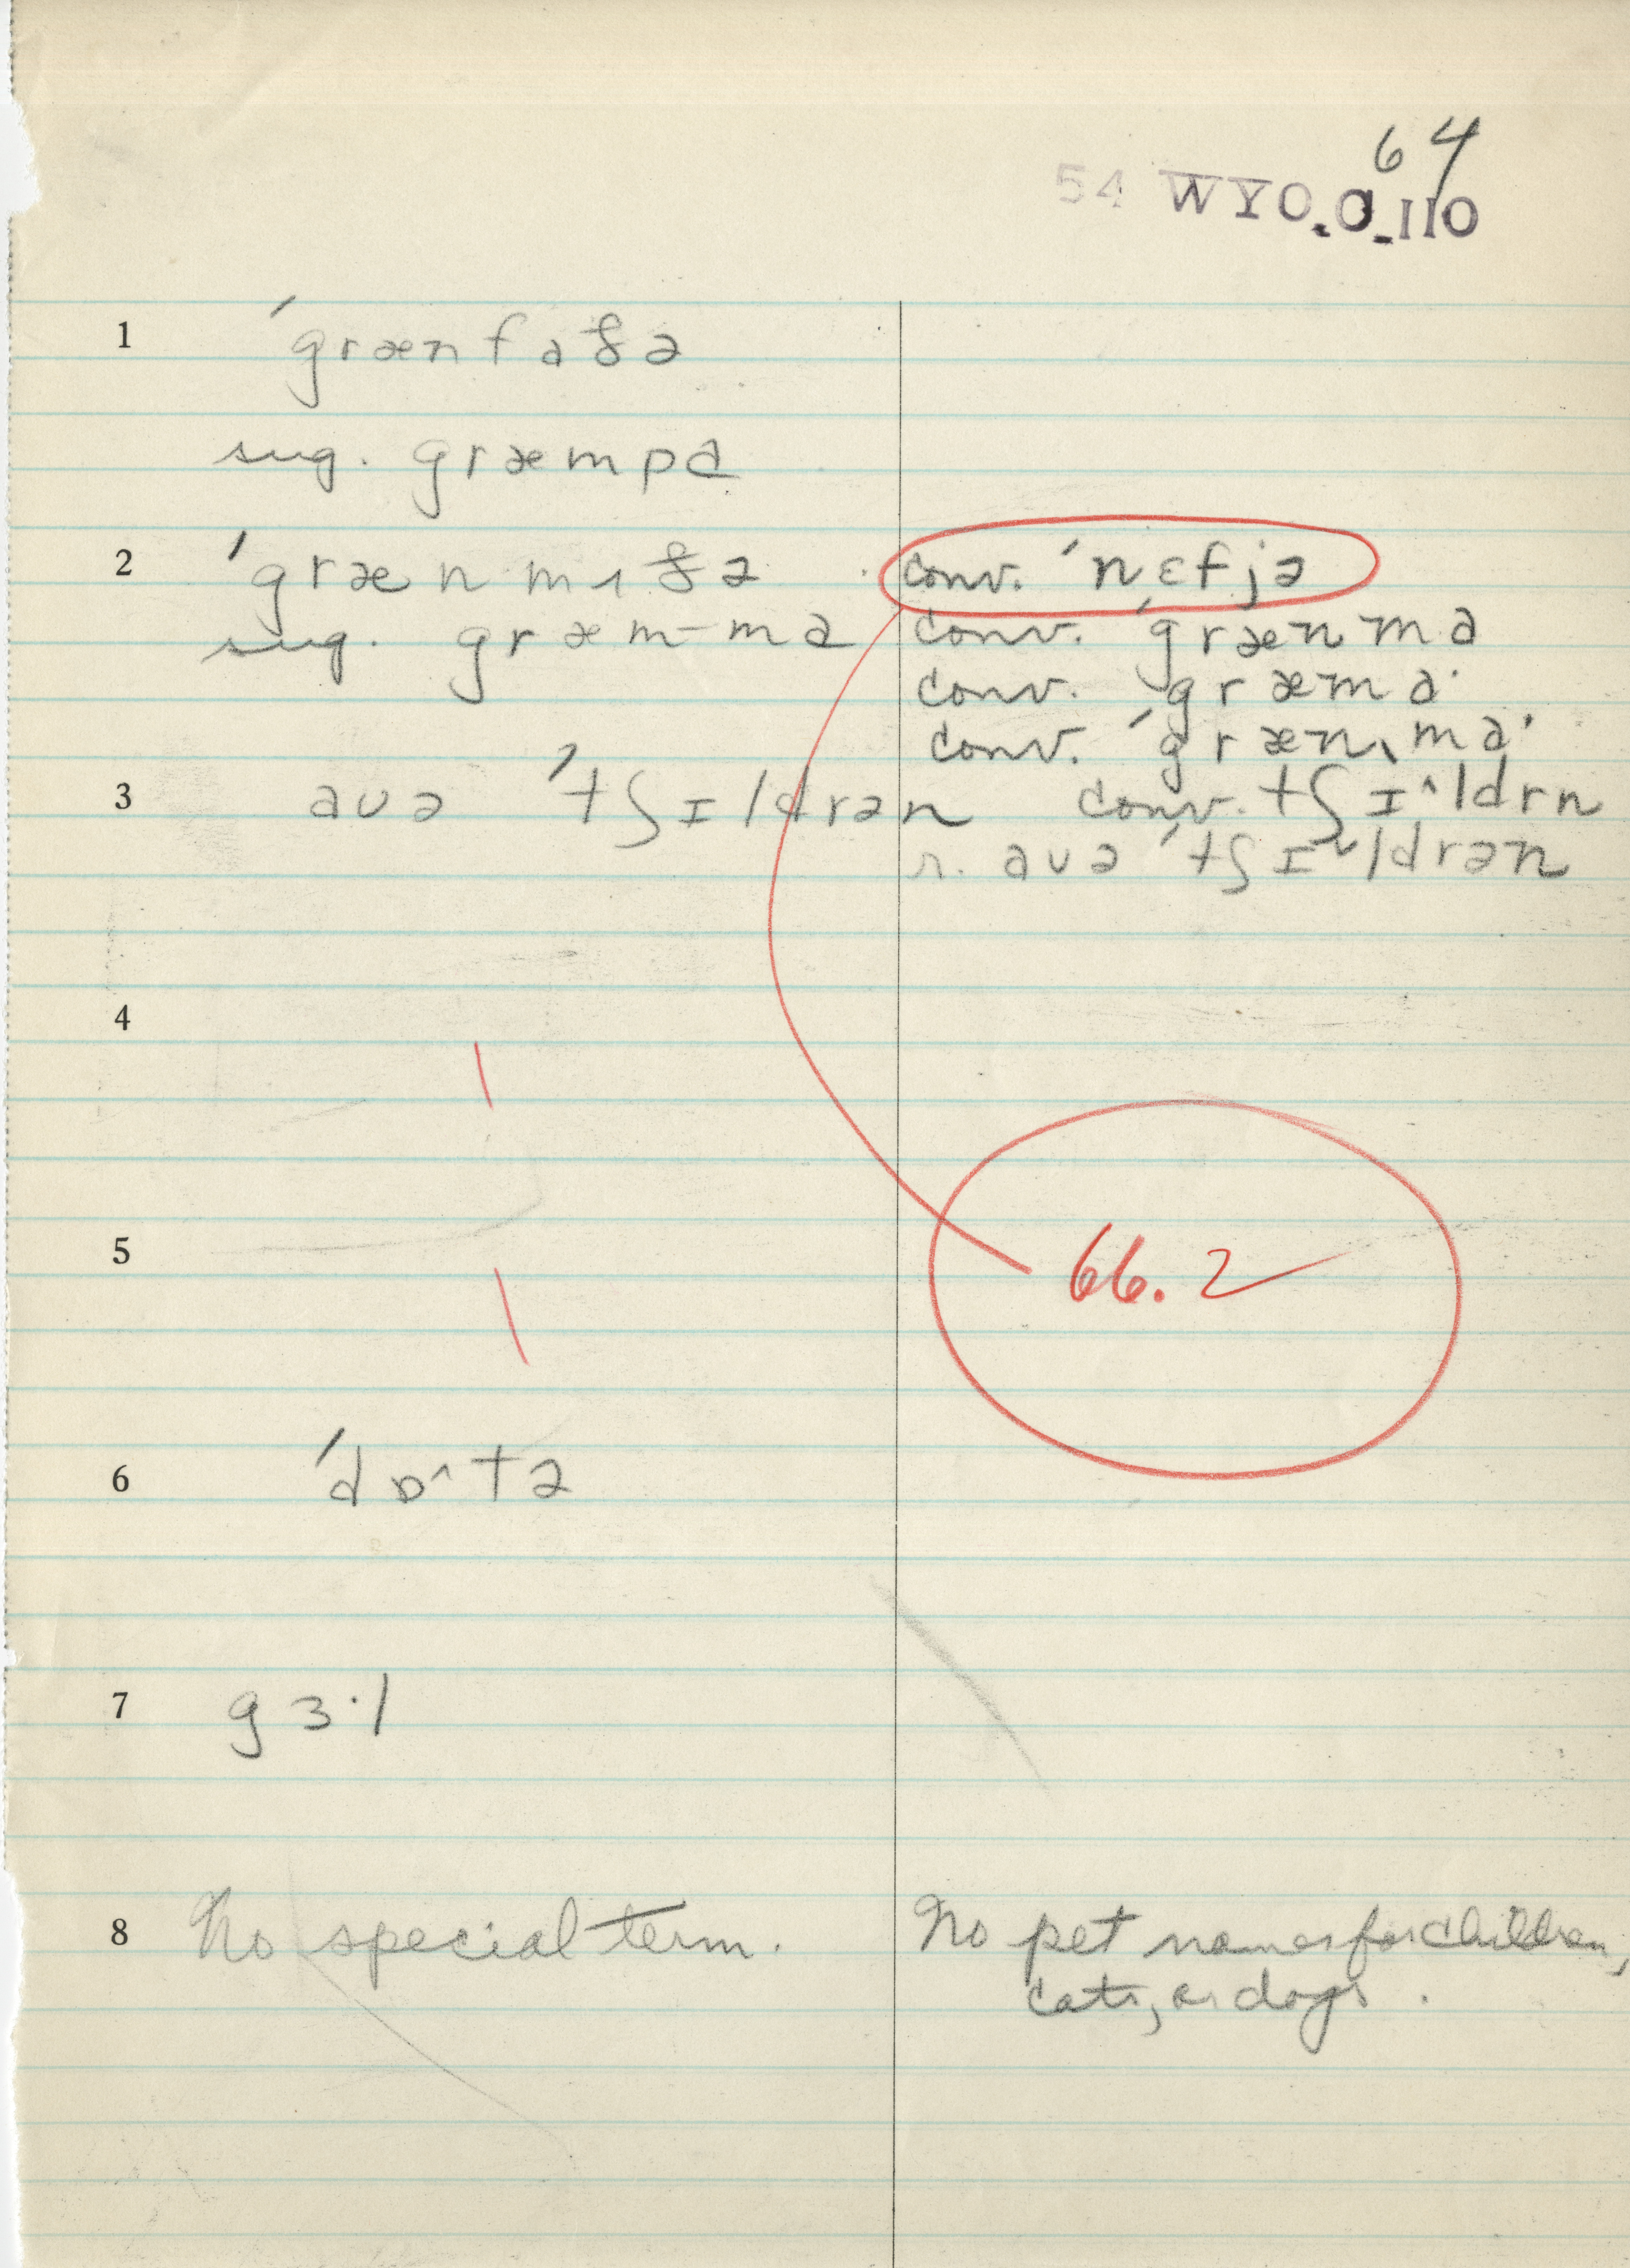 64
54 WYO. O-110
1 ˊgrænfaðə
sug. græmpa
2 ˊgrænmɪðə conv. ˊnɛfjə
sug. græm-ma conv. ˊgrænma
conv. ˊgræmaˑ
conv. ˊgrænˎmaˑ
3 aʊə ˊtʃɪldrən conv. tʃɪ^ldrn
r. aʊə ˊtʃɪ˅ldrən
4
5
66.2
6 ˊdɒ^tə
7 gɜˑl
8 No special term. No pet names for children,
cats, or dogs.